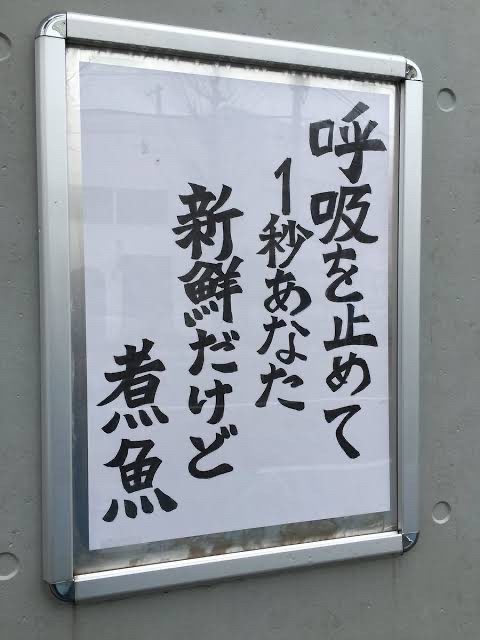 呼吸を止めて
1秒あなた
新鮮だけど
煮魚